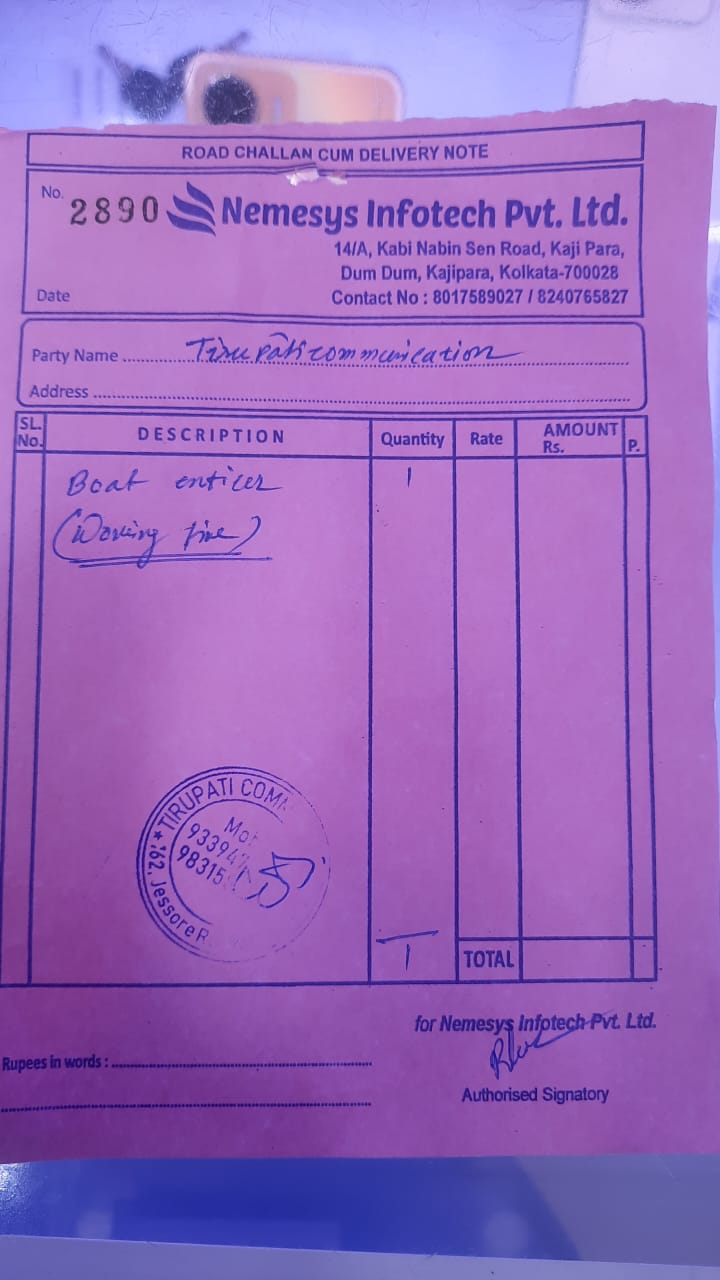 ROAD CHALLAN CUM DELIVERY NOTE
No. 2890 Nemesys Infotech Pvt. Ltd.
14/A, Kabi Nabin Sen Road, Kaji Para,
Dum Dum, Kajipara, Kolkata-700028
Date Contact No : 8017589027 / 8240765827
Party Name Tirupati communication
Address
SL. No. DESCRIPTION Quantity Rate AMOUNT Rs. P.
Boat enticer 1
(Working fine)
TIRUPATI COM
Mo
93394
98315
162, Jessore R
1 TOTAL
for Nemesys Infotech Pvt. Ltd.
Rupees in words :
Authorised Signatory